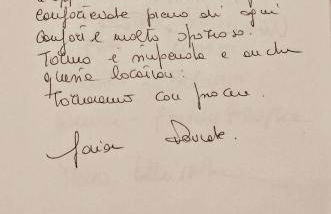 confortevole pieno di ogni
confort e molto spazioso.
Torino è stupenda e anche
questa location!
Torneremo con piacere.
Davide.